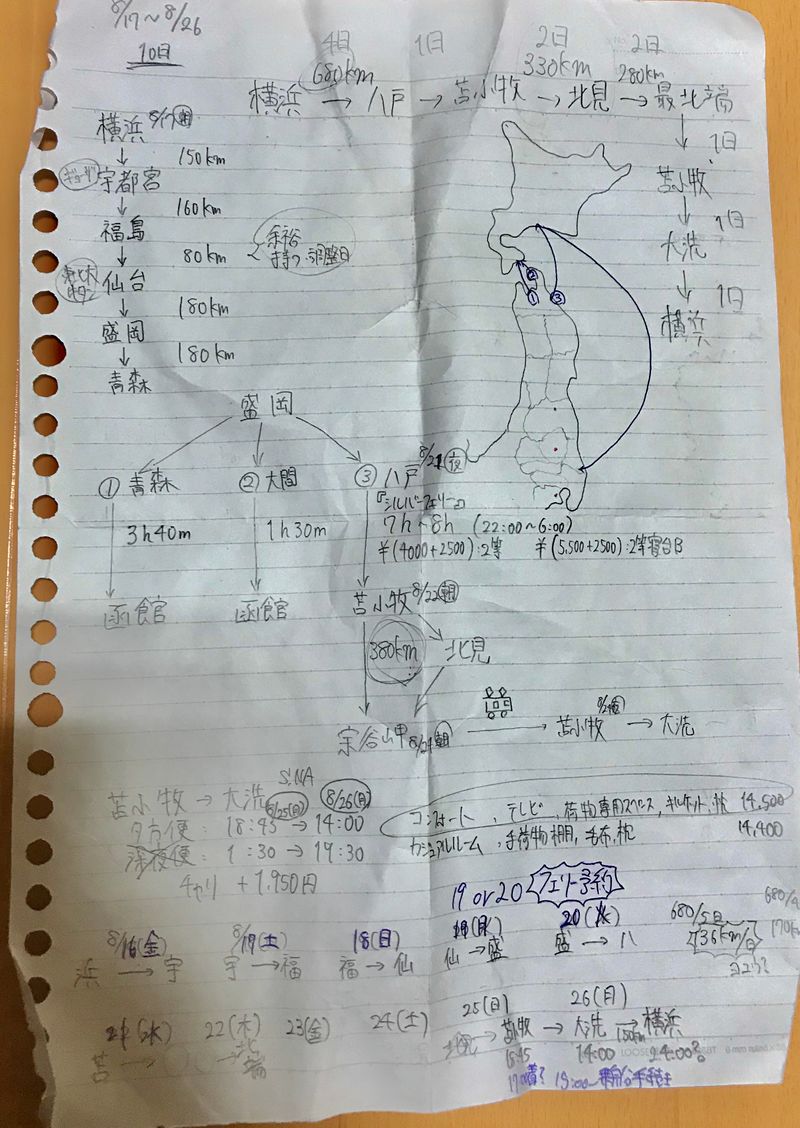 8/17〜8/26
10日
4日 1日 2日 2日
680km 330km 280km
横浜 → 八戸 → 苫小牧 → 北見 → 最北端
↓ 1日
苫小牧
↓ 1日
大洗
↓ 1日
横浜
横浜
↓ 150km
ギョーザ 宇都宮
↓ 160km
福島
↓ 80km
余裕
持つ、調整日
仙台
↓ 180km
盛岡
↓ 180km
青森
① ② ③
盛岡
① 青森 ② 大間 ③ 八戸 夜
3h40m 1h30m
『シルバーフェリー』
7h〜8h (22:00〜6:00)
¥(4000+2500):2等 ¥(5,500+2500):2等寝台B
函館 函館 苫小牧 8/22 朝
380km 北見
宗谷岬 → 苫小牧 → 大洗
苫小牧 → 大洗
8/25(日) 8/26(月)
夕方便: 18:45 → 14:00
深夜便: 1:30 → 19:30
チャリ +1,950円
コンフォート、テレビ、荷物専用スペース、キルケット、枕 14,500
カジュアルルーム、手荷物棚、毛布、枕 14,400
19 or 20 フェリー予約
8/16(金) 18(日) 20(火)
浜 → 宇 宇 → 福 福 → 仙 仙 → 盛 盛 → 八
680/5日
136km/日
21(水) 22(木) 23(金) 24(土) 25(日) 26(月)
苫 →
苫小牧 → 大洗 → 横浜
14:00 24:00?